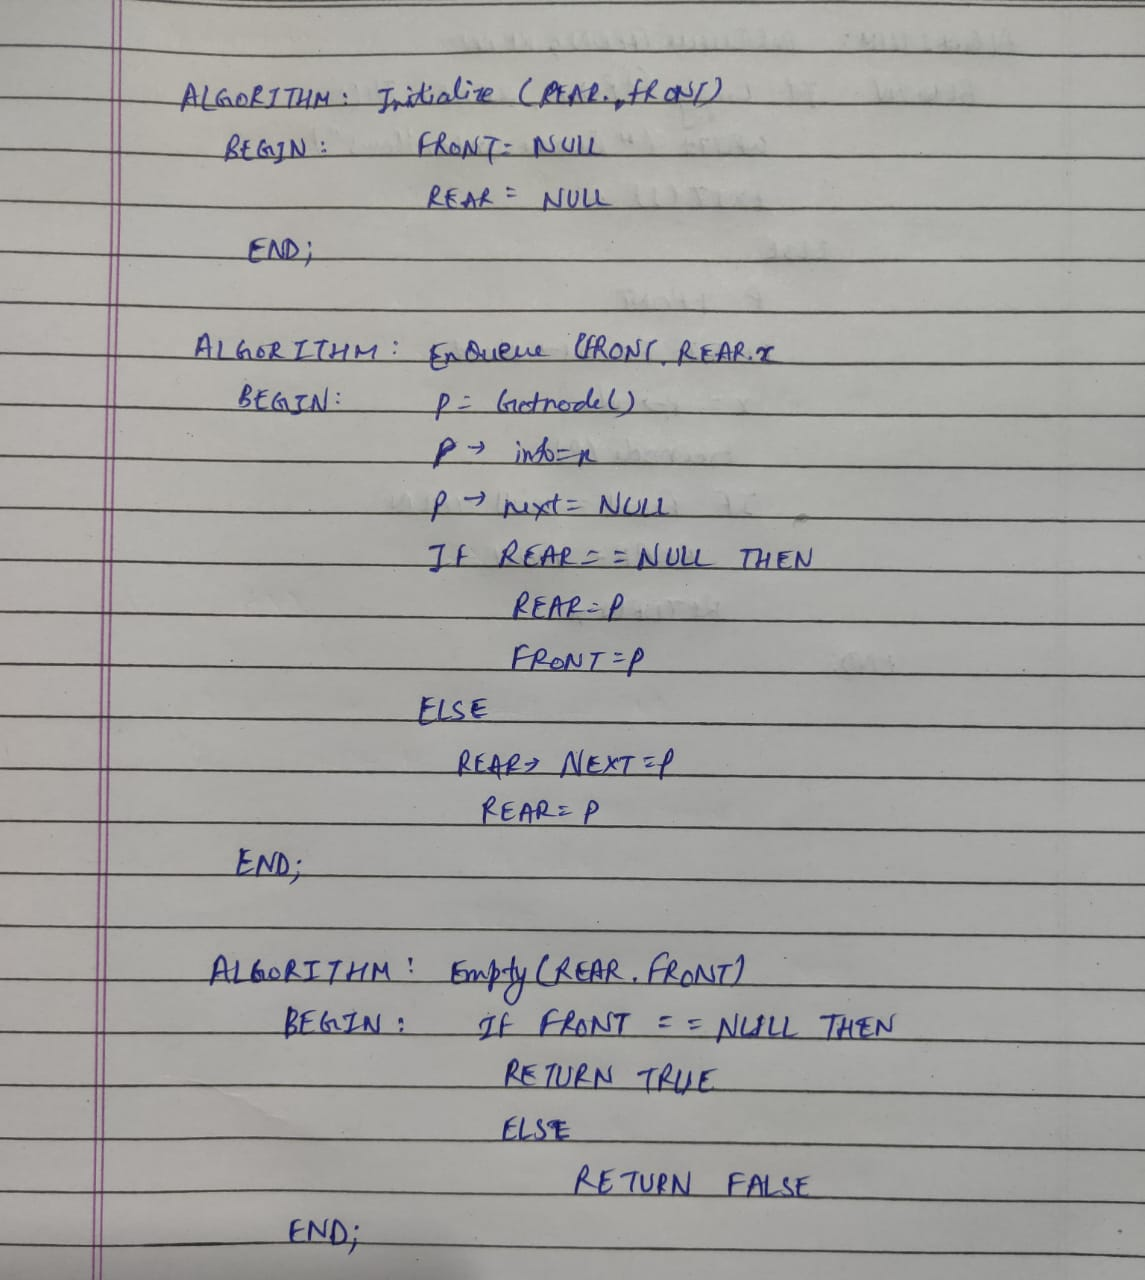 ALGORITHM: Initialize (REAR, FRONT)
BEGIN: FRONT= NULL
REAR = NULL
END;
ALGORITHM: EnQueue (FRONT, REAR.x
BEGIN: P= Getnode()
P → info=x
P → next= NULL
If REAR== NULL THEN
REAR=P
FRONT=P
ELSE
REAR→ NEXT=P
REAR= P
END;
ALGORITHM: Empty (REAR, FRONT)
BEGIN: If FRONT == NULL THEN
RETURN TRUE
ELSE
RETURN FALSE
END;